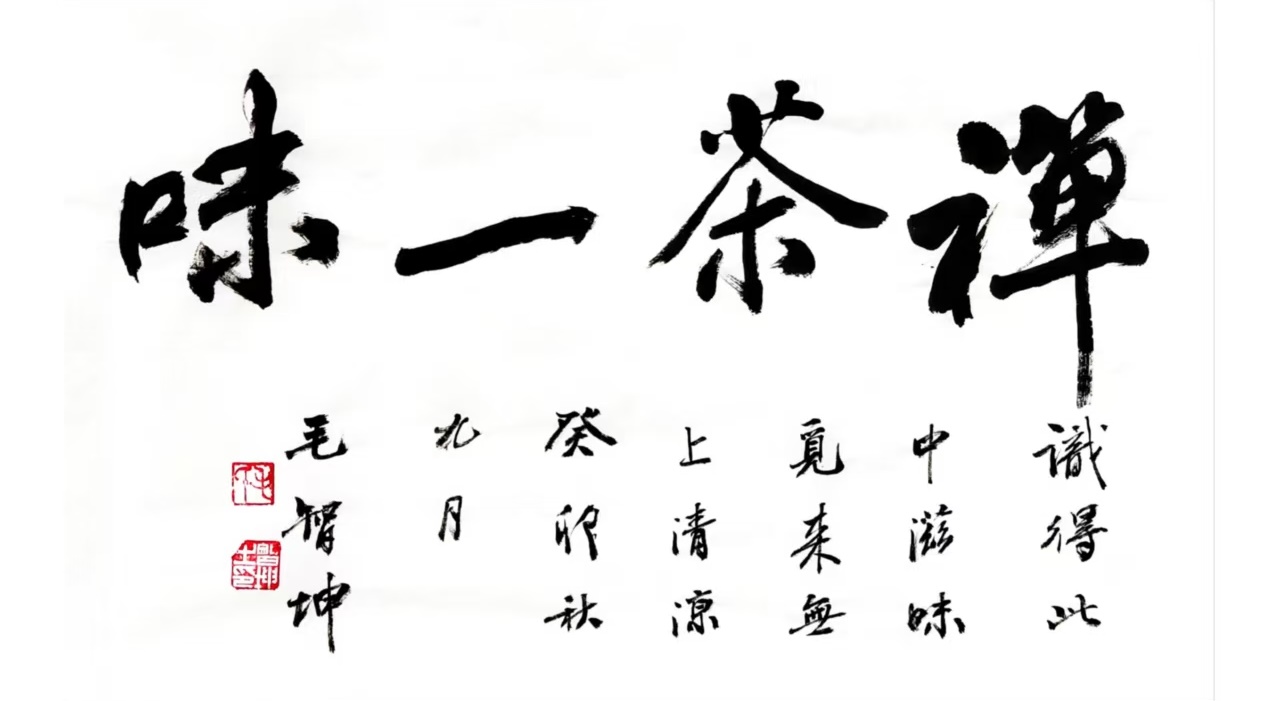 禪茶一味
識得此
中滋味
覓来無
上清涼
癸卯秋
九月
毛智坤